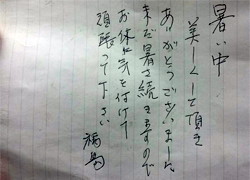 暑い中
美しくして頂き
ありがとうございました
まだ暑さ続きますので
お体に気を付けて
頑張って下さい
福島